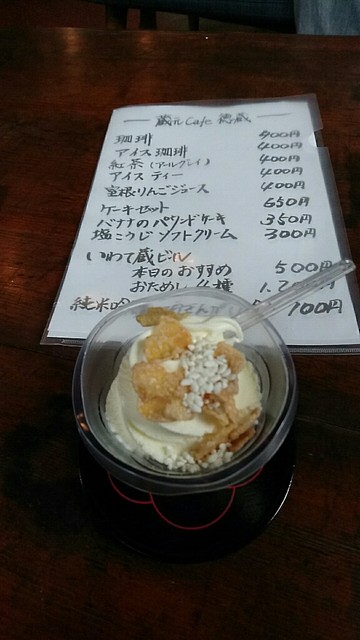 蔵元Cafe 徳蔵
珈琲 400円
アイス珈琲 400円
紅茶(アールグレイ) 400円
アイスティー 400円
室根りんごジュース 400円
ケーキセット 650円
バナナのパウンドケーキ 350円
塩こうじソフトクリーム 300円
いわて蔵ビール
本日のおすすめ 500円
おためし4種
純米吟
100円